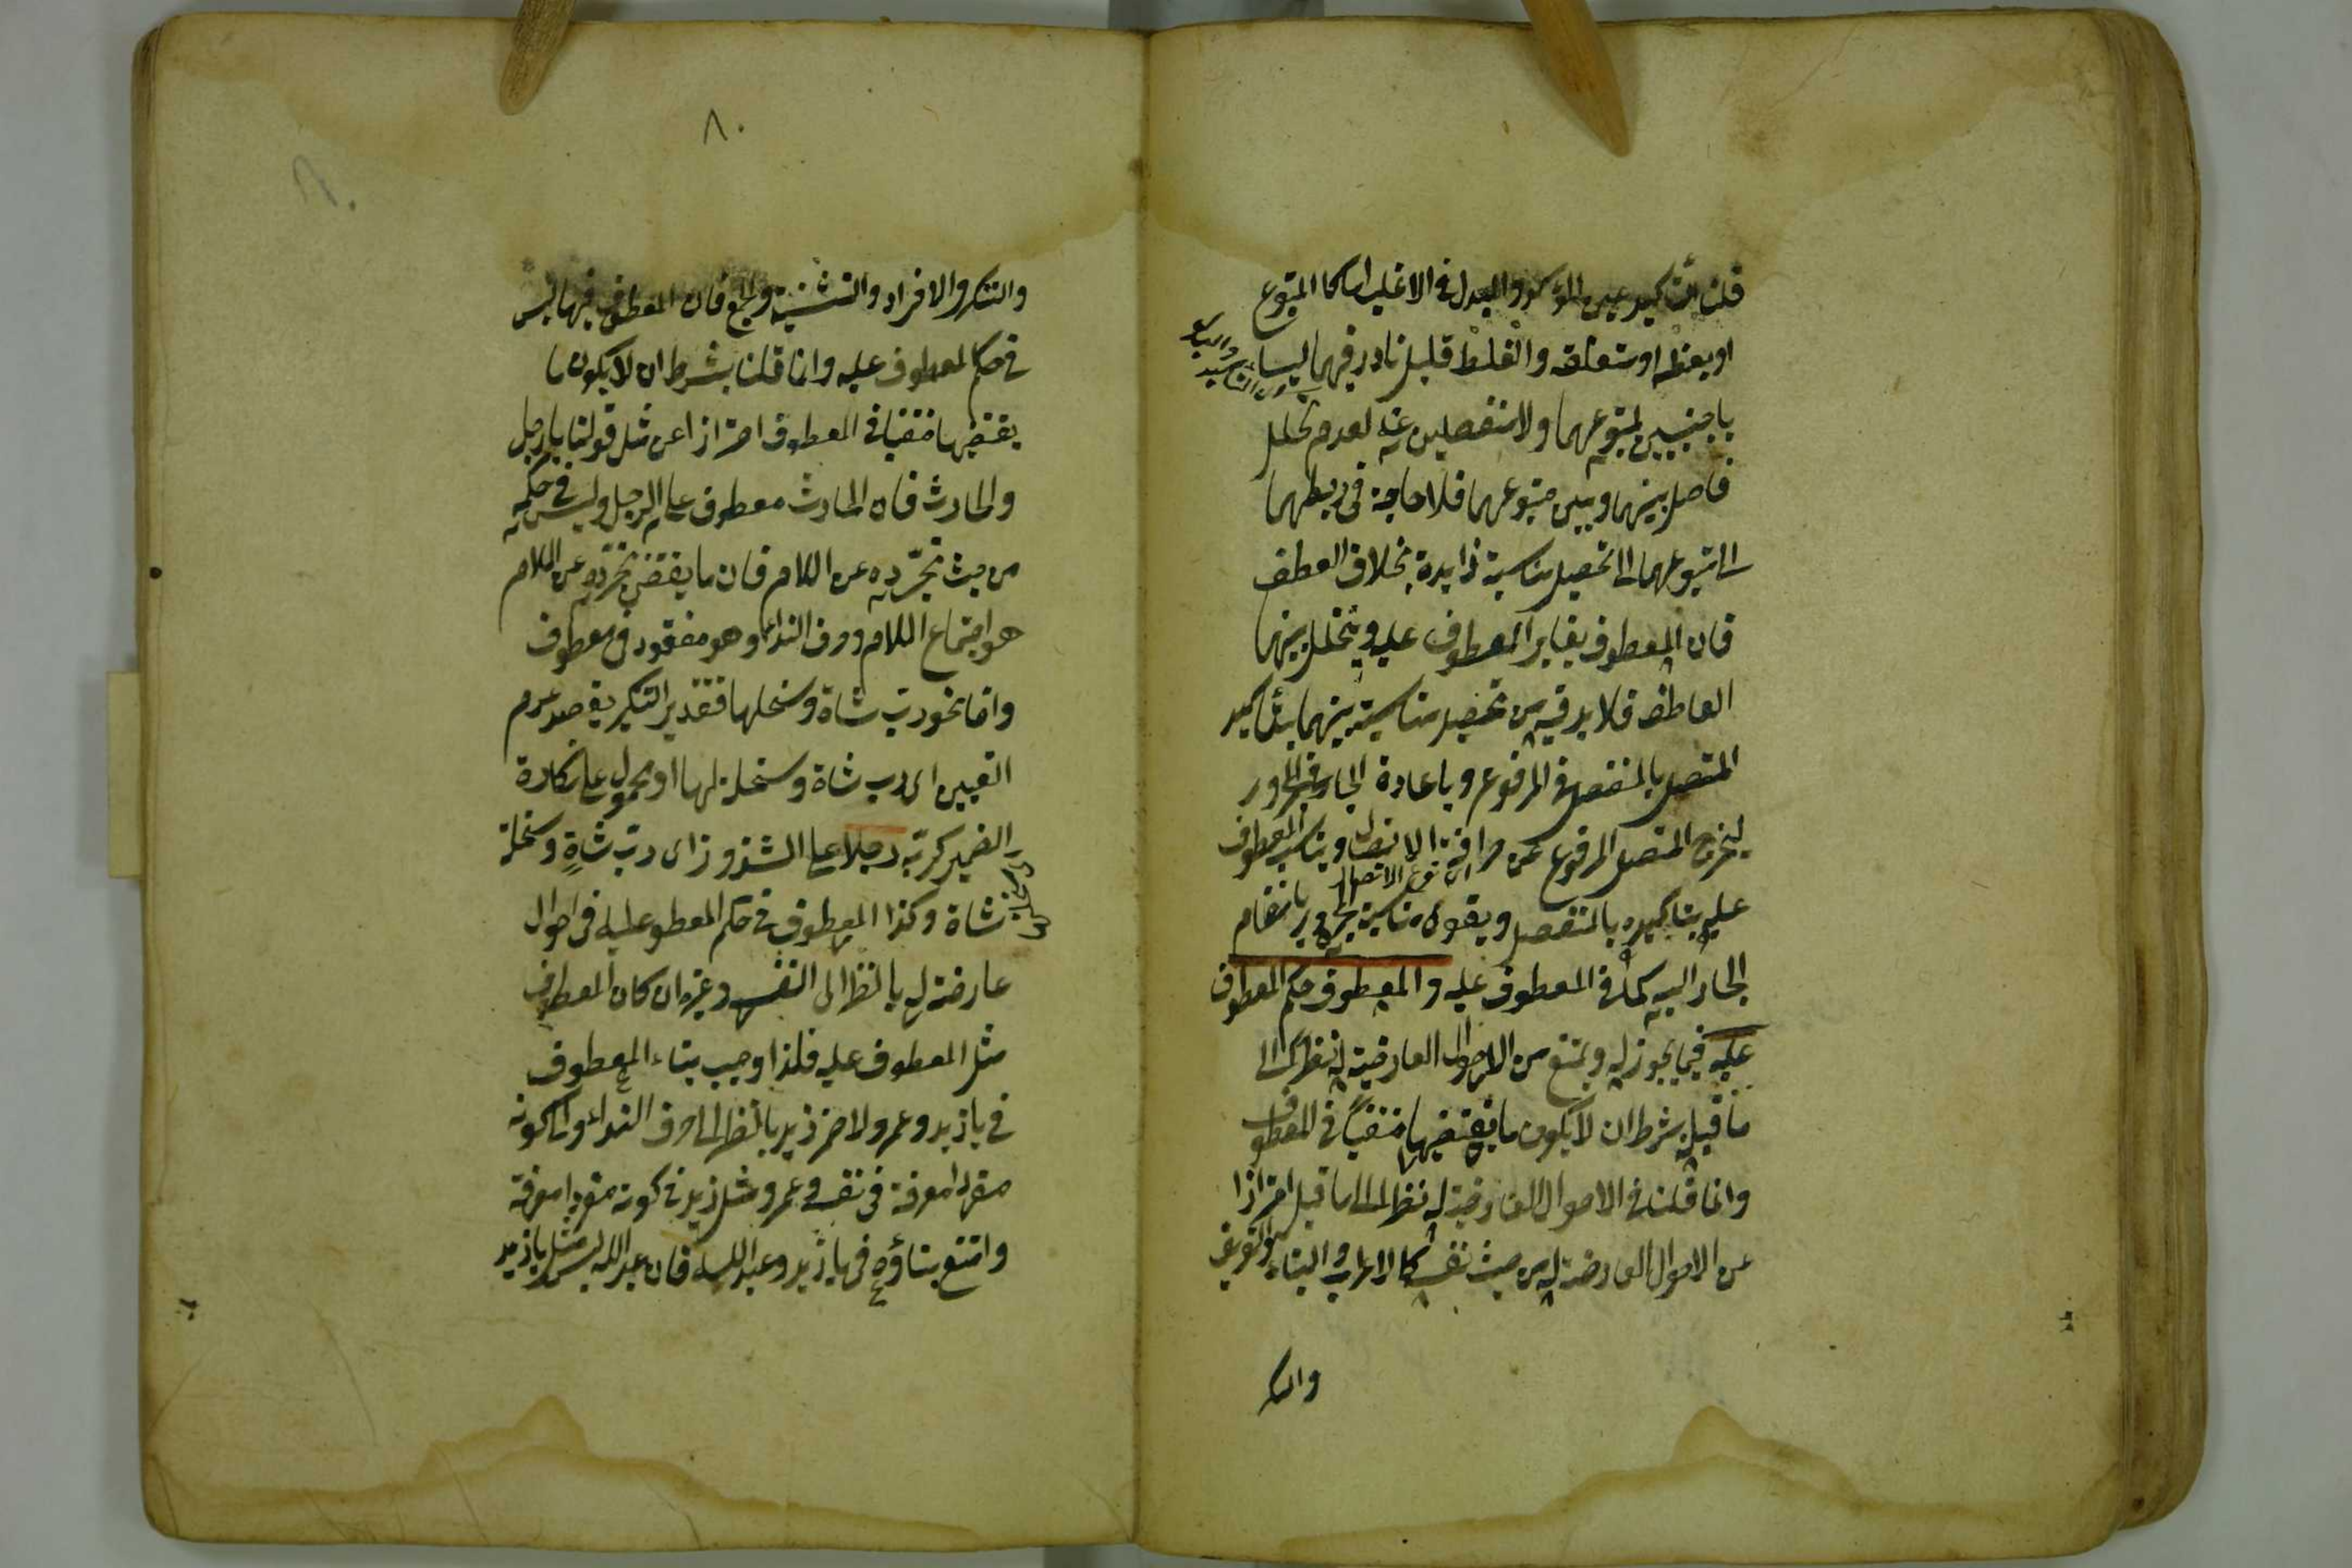 قلنا التاكيد عين المؤكد والبدل في الاغلب اما كل المتبوع
او بعضه او متعلقه والغلط قليل نادر فهما ليسا
باجنبيين لمتبوعهما ولا منفصلين عنه لعدم تخلل
فاصل بينهما وبين متبوعهما فلا حاجة في ربطهما
الى متبوعهما الى تحصيل مناسبة زايدة بخلاف العطف
فان المعطوف يغاير المعطوف عليه ويتخلل بينهما
العاطف فلا بد فيه من تحصيل مناسبة بينهما بتاكيد
المتصل بالمنفصل في المرفوع وباعادة الجار في المجرور
ليخرج المتصل المرفوع عن صرافة الاتصال ويناسب المعطوف
اى نوع الاتصال
عليه بتاكيده بالمنفصل ويقوى مناسبة المجرور بانضمام
الجار اليه كما في المعطوف عليه والمعطوف في حكم المعطوف
عليه فيما يجوز له ويمتنع من الاحوال العارضة له نظرا الى
ما قبله بشرط ان لا يكون ما يقتضيها منتفيا في المعطوف
وانما قلنا في الاحوال العارضة له نظرا الى ما قبله احترازا
عن الاحوال العارضة له من حيث نفسه كالاعراب والبناء والتعريف
والتنكير
٨٠
والتنكير والافراد والتثنية والجمع فان المعطوف فيها ليس
في حكم المعطوف عليه وانما قلنا بشرط ان لا يكون ما
يقتضيها منتفيا في المعطوف احترازا عن مثل قولنا يا رجل
والحارث فان الحارث معطوف على الرجل وليس في حكمه
من حيث تجرده عن اللام فان ما يقتضي تجرده عن اللام
هو اجتماع اللام وحرف النداء وهو مفقود في معطوف
واما نحو رب شاة وسخلتها فتقدير التنكير يقصد عدم
التعيين اى رب شاة وسخلة لها او محمول على نكارة
الضمير كربه رجلا على الشذوذ اى رب شاة وسخلة
شاة وكذا المعطوف في حكم المعطوف عليه في احوال
عارضة له بالنظر الى نفسه وغيره ان كان المعطوف
مثل المعطوف عليه فلذا وجب بناء المعطوف
في يا زيد وعمرو لان ضم زيد بالنظر الى حرف النداء والى كونه
مفردا معرفة في نفسه وعمرو مثل زيد في كونه مفردا معرفة
وامتنع بناؤه في يا زيد وعبد الله فان عبد الله ليس مثل يا زيد